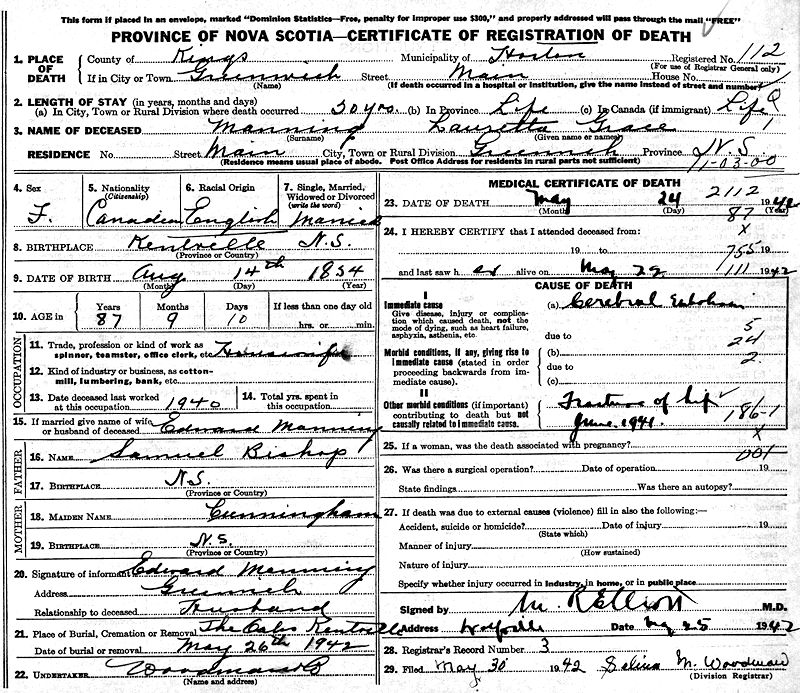 This form if placed in an envelope, marked "Dominion Statistics—Free, penalty for improper use $300," and properly addressed will pass through the mail "FREE"
PROVINCE OF NOVA SCOTIA—CERTIFICATE OF REGISTRATION OF DEATH
1. PLACE OF DEATH County of Kings Municipality of Horton Registered No. 112
(For use of Registrar General only)
If in City or Town Greenwich Street Main House No.
(Name) (If death occurred in a hospital or institution, give the name instead of street and number)
2. LENGTH OF STAY (in years, months and days)
(a) In City, Town or Rural Division where death occurred 50 yrs. (b) In Province Life (c) In Canada (if immigrant) Life
3. NAME OF DECEASED Manning Lauretta Grace
(Surname) (Given name or names)
RESIDENCE No. Street Main City, Town or Rural Division Greenwich Province N.S.
(Residence means usual place of abode. Post Office Address for residents in rural parts not sufficient) 11-03-00
4. Sex 5. Nationality (Citizenship) 6. Racial Origin 7. Single, Married, Widowed or Divorced (write the word)
F. Canadian English Married
8. BIRTHPLACE Kentville N.S.
(Province or Country)
9. DATE OF BIRTH Aug 14th 1854
(Month) (Day) (Year)
10. AGE in Years Months Days If less than one day old
87 9 10 hrs. or min.
OCCUPATION
11. Trade, profession or kind of work as spinner, teamster, office clerk, etc. Housewife
12. Kind of industry or business, as cotton-mill, lumbering, bank, etc.
13. Date deceased last worked at this occupation 1940 14. Total yrs. spent in this occupation
15. If married give name of wife or husband of deceased Edward Manning
FATHER
16. NAME Samuel Bishop
17. BIRTHPLACE N.S.
(Province or Country)
MOTHER
18. MAIDEN NAME Cunningham
19. BIRTHPLACE N.S.
(Province or Country)
20. Signature of informant Edward Manning
Address Greenwich
Relationship to deceased Husband
21. Place of Burial, Cremation or Removal The Oaks Kentville
Date of burial or removal May 26th 1942
22. UNDERTAKER
(Name and address)
MEDICAL CERTIFICATE OF DEATH
2112
23. DATE OF DEATH May 24 1942
(Month) (Day) (Year)
87
24. I HEREBY CERTIFY that I attended deceased from: x
19 to 19
755
and last saw her alive on May 22 1942
111
CAUSE OF DEATH
I
Immediate cause
Give disease, injury or complication which caused death, not the mode of dying, such as heart failure, asphyxia, asthenia, etc.
(a) Cerebral Embolism
due to
5
24
2
Morbid conditions, if any, giving rise to immediate cause (stated in order proceeding backwards from immediate cause).
(b)
due to
(c)
II
Other morbid conditions (if important) contributing to death but not causally related to immediate cause.
Fracture of hip
June 1941.
186-1
x
25. If a woman, was the death associated with pregnancy?
001
26. Was there a surgical operation? Date of operation 19
State findings Was there an autopsy?
27. If death was due to external causes (violence) fill in also the following:—
Accident, suicide or homicide? Date of injury 19
(State which)
Manner of injury
(How sustained)
Nature of injury
Specify whether injury occurred in industry, in home, or in public place
Signed by M. R. Elliott M.D.
Address Wolfville Date May 25 1942
28. Registrar's Record Number 3
29. Filed May 30 1942 M. Woodman
(Division Registrar)